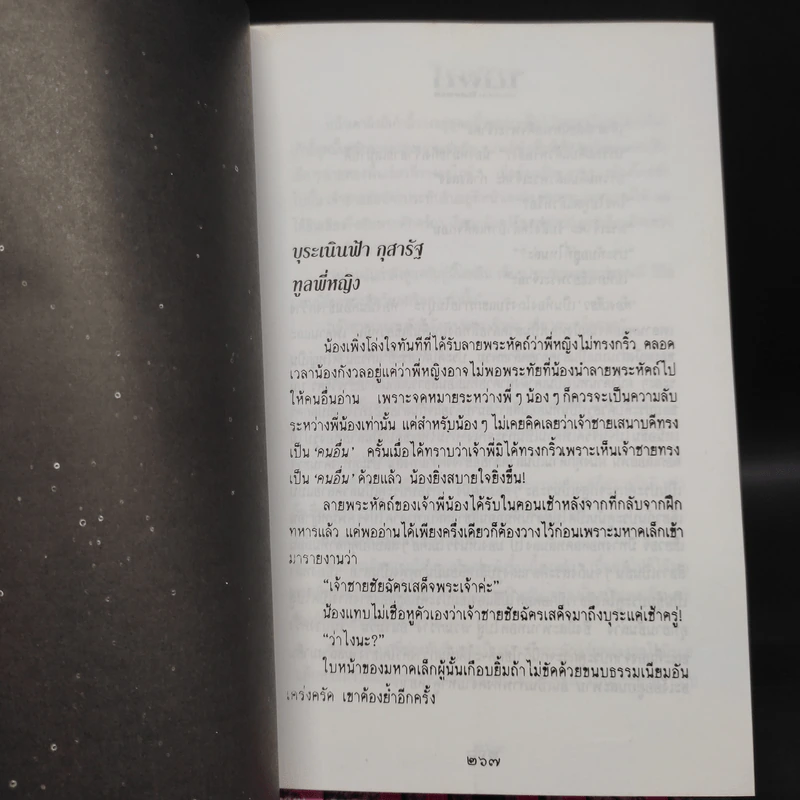 บุระเนินฟ้า กุสารัฐ
ทูลพี่หญิง
น้องเพิ่งโล่งใจทันทีที่ได้รับลายพระหัตถ์ว่าพี่หญิงไม่ทรงกริ้ว ตลอด
เวลาน้องกังวลอยู่แต่ว่าพี่หญิงอาจไม่พอพระทัยที่น้องนำลายพระหัตถ์ไป
ให้คนอื่นอ่าน เพราะจดหมายระหว่างพี่ๆ น้องๆ ก็ควรจะเป็นความลับ
ระหว่างพี่น้องเท่านั้น แต่สำหรับน้องๆ ไม่เคยคิดเลยว่าเจ้าชายเสนาบดีทรง
เป็น ‘คนอื่น’ ครั้นเมื่อได้ทราบว่าเจ้าพี่มิได้ทรงกริ้วเพราะเห็นเจ้าชายทรง
เป็น ‘คนอื่น’ ด้วยแล้ว น้องยิ่งสบายใจยิ่งขึ้น!
ลายพระหัตถ์ของเจ้าพี่น้องได้รับในตอนเช้าหลังจากที่กลับจากฝึก
ทหารแล้ว แต่พออ่านได้เพียงครึ่งเดียวก็ต้องวางไว้ก่อนเพราะมหาดเล็กเข้า
มารายงานว่า
“เจ้าชายชัยฉัตรเสด็จพระเจ้าค่ะ”
น้องแทบไม่เชื่อหูตัวเองว่าเจ้าชายชัยฉัตรเสด็จมาถึงบุระแต่เช้าตรู่!
“ว่าไงนะ?”
ใบหน้าของมหาดเล็กผู้นั้นเกือบยิ้มถ้าไม่ขัดด้วยขนบธรรมเนียมอัน
เคร่งครัด เขาต้องย้ำอีกครั้ง
๒๖๗